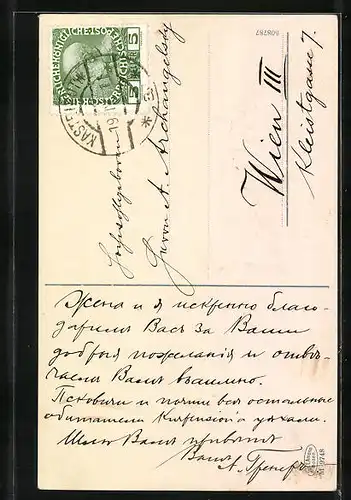 KAISERLICHE KÖNIGLICHE ÖSTERREICHISCHE POST
5 5
19
508787
Hochwohlgeboren
Herrn A. Archangelsky
Wien III
Kleistgasse 7.
Жена и я искренно благо-
даримъ Васъ за Ваши
добрыя пожеланія и отвѣ-
чаемъ Вамъ взаимно.
Псковичи и почти всѣ остальные
обитатели Kurpension'а уѣхали.
Шлемъ Вамъ привѣтъ
Вашъ
А. Гренеръ